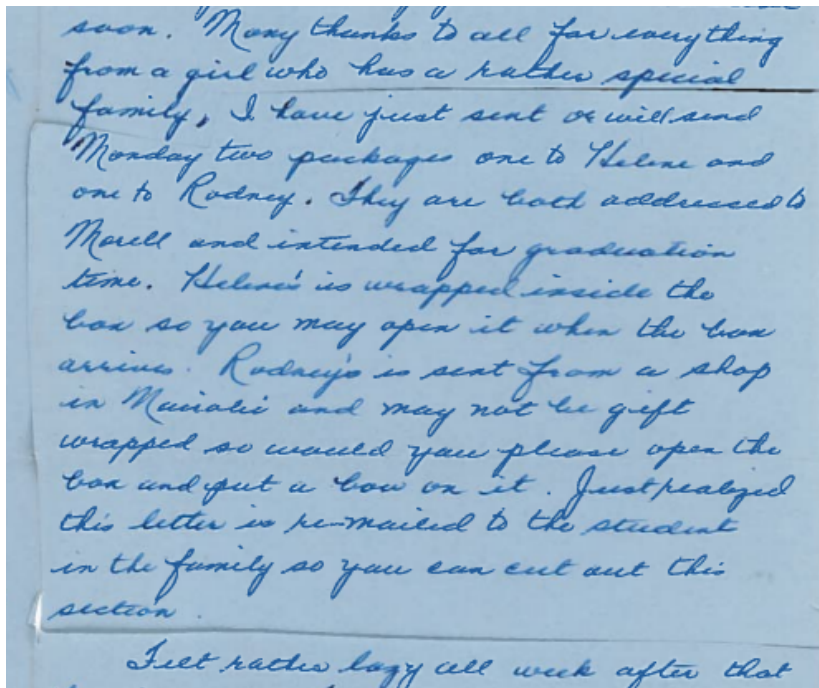 soon. Many thanks to all for everything
from a girl who has a rather special
family, I have just sent or will send
Monday two packages one to Helene and
one to Rodney. They are both addressed to
Morell and intended for graduation
time. Helene's is wrapped inside the
box so you may open it when the box
arrives. Rodney's is sent from a shop
in and may not be gift
wrapped so would you please open the
box and put a bow on it. Just realized
this letter is re-mailed to the student
in the family so you can cut out this
section.
Felt rather lazy all week after that